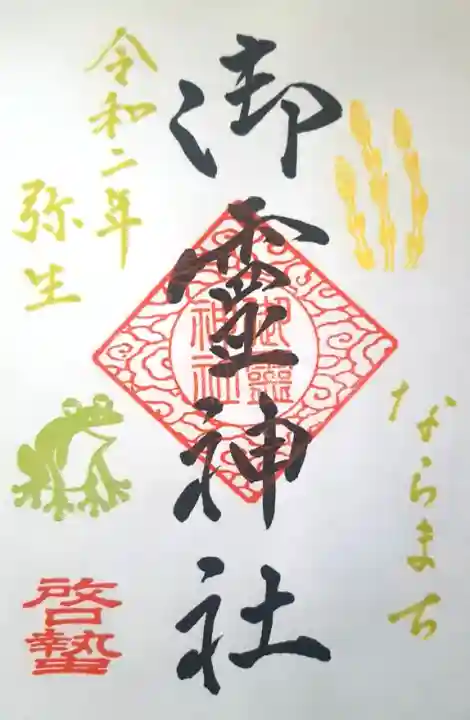 ならまち
御靈神社
御靈
神社
令和二年
弥生
啓蟄